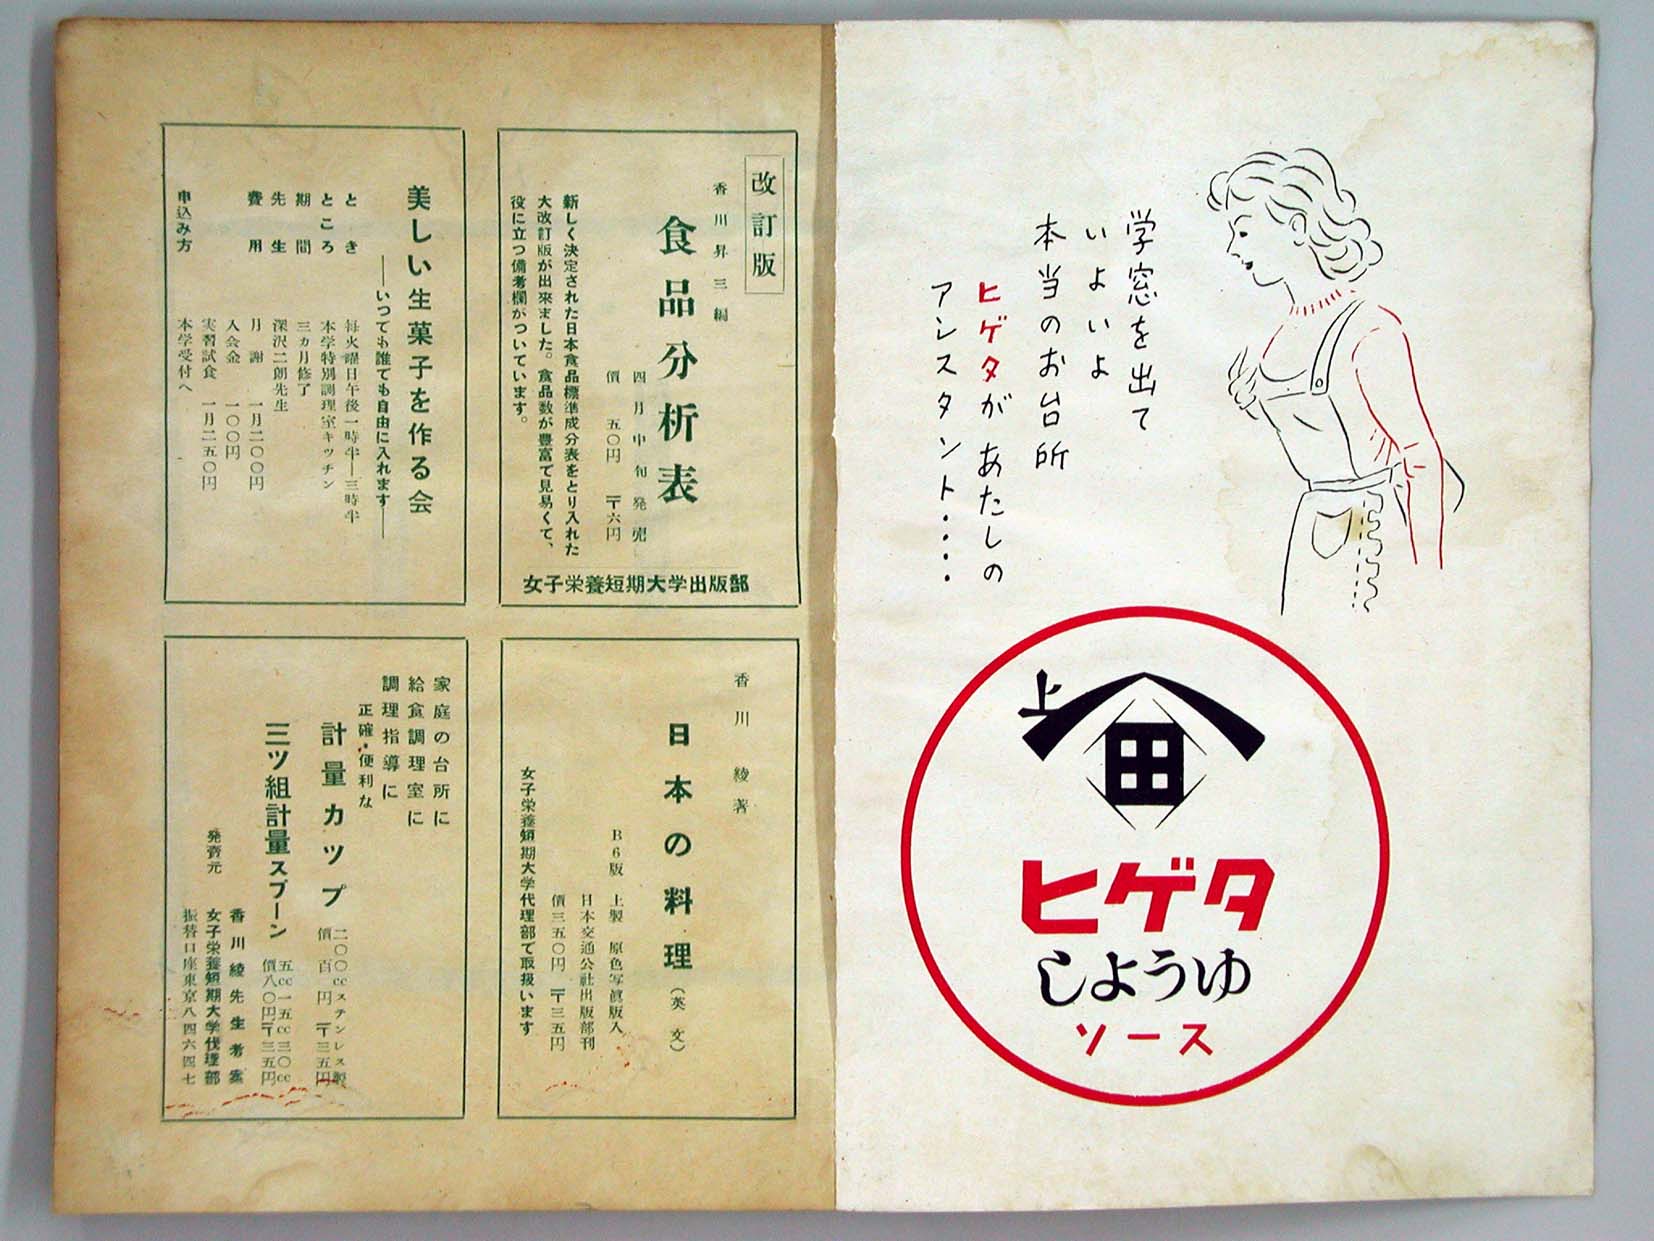 学窓を出て
いよいよ
本当のお台所
ヒゲタがあたしの
アシスタント・・・・
上
田
ヒゲタ
しようゆ
ソース
改訂版
香川昇三編
食品分析表
四月中旬発売
價 五〇円 〒六円
新しく決定された日本食品標準成分表をとり入れた
大改訂版が出來ました。食品数が豊富で見易くて、
役に立つ備考欄がついています。
女子栄養短期大学出版部
美しい生菓子を作る会
――いつでも誰でも自由に入れます――
とき 毎火曜日午後一時半―三時半
ところ 本学特別調理室キッチン
期間 三カ月修了
先生 深沢二朗先生
費用 月謝 一月二〇〇円
入会金 一〇〇円
実習試食 一月二五〇円
申込み方 本学受付へ
香川綾著
日本の料理(英文)
B6版 上製 原色写眞版入
日本交通公社出版部刊
價三五〇円 〒三五円
女子栄養短期大学代理部で取扱います
家庭の台所に
給食調理室に
調理指導に
正確・便利な
計量カツプ 二〇〇ccステンレス製
價 百円 〒三五円
三ツ組計量スプーン 五cc一五cc三〇cc
價八〇円〒三五円
発賣元
香川綾先生考案
女子栄養短期大学代理部
振替口座東京八四六四七